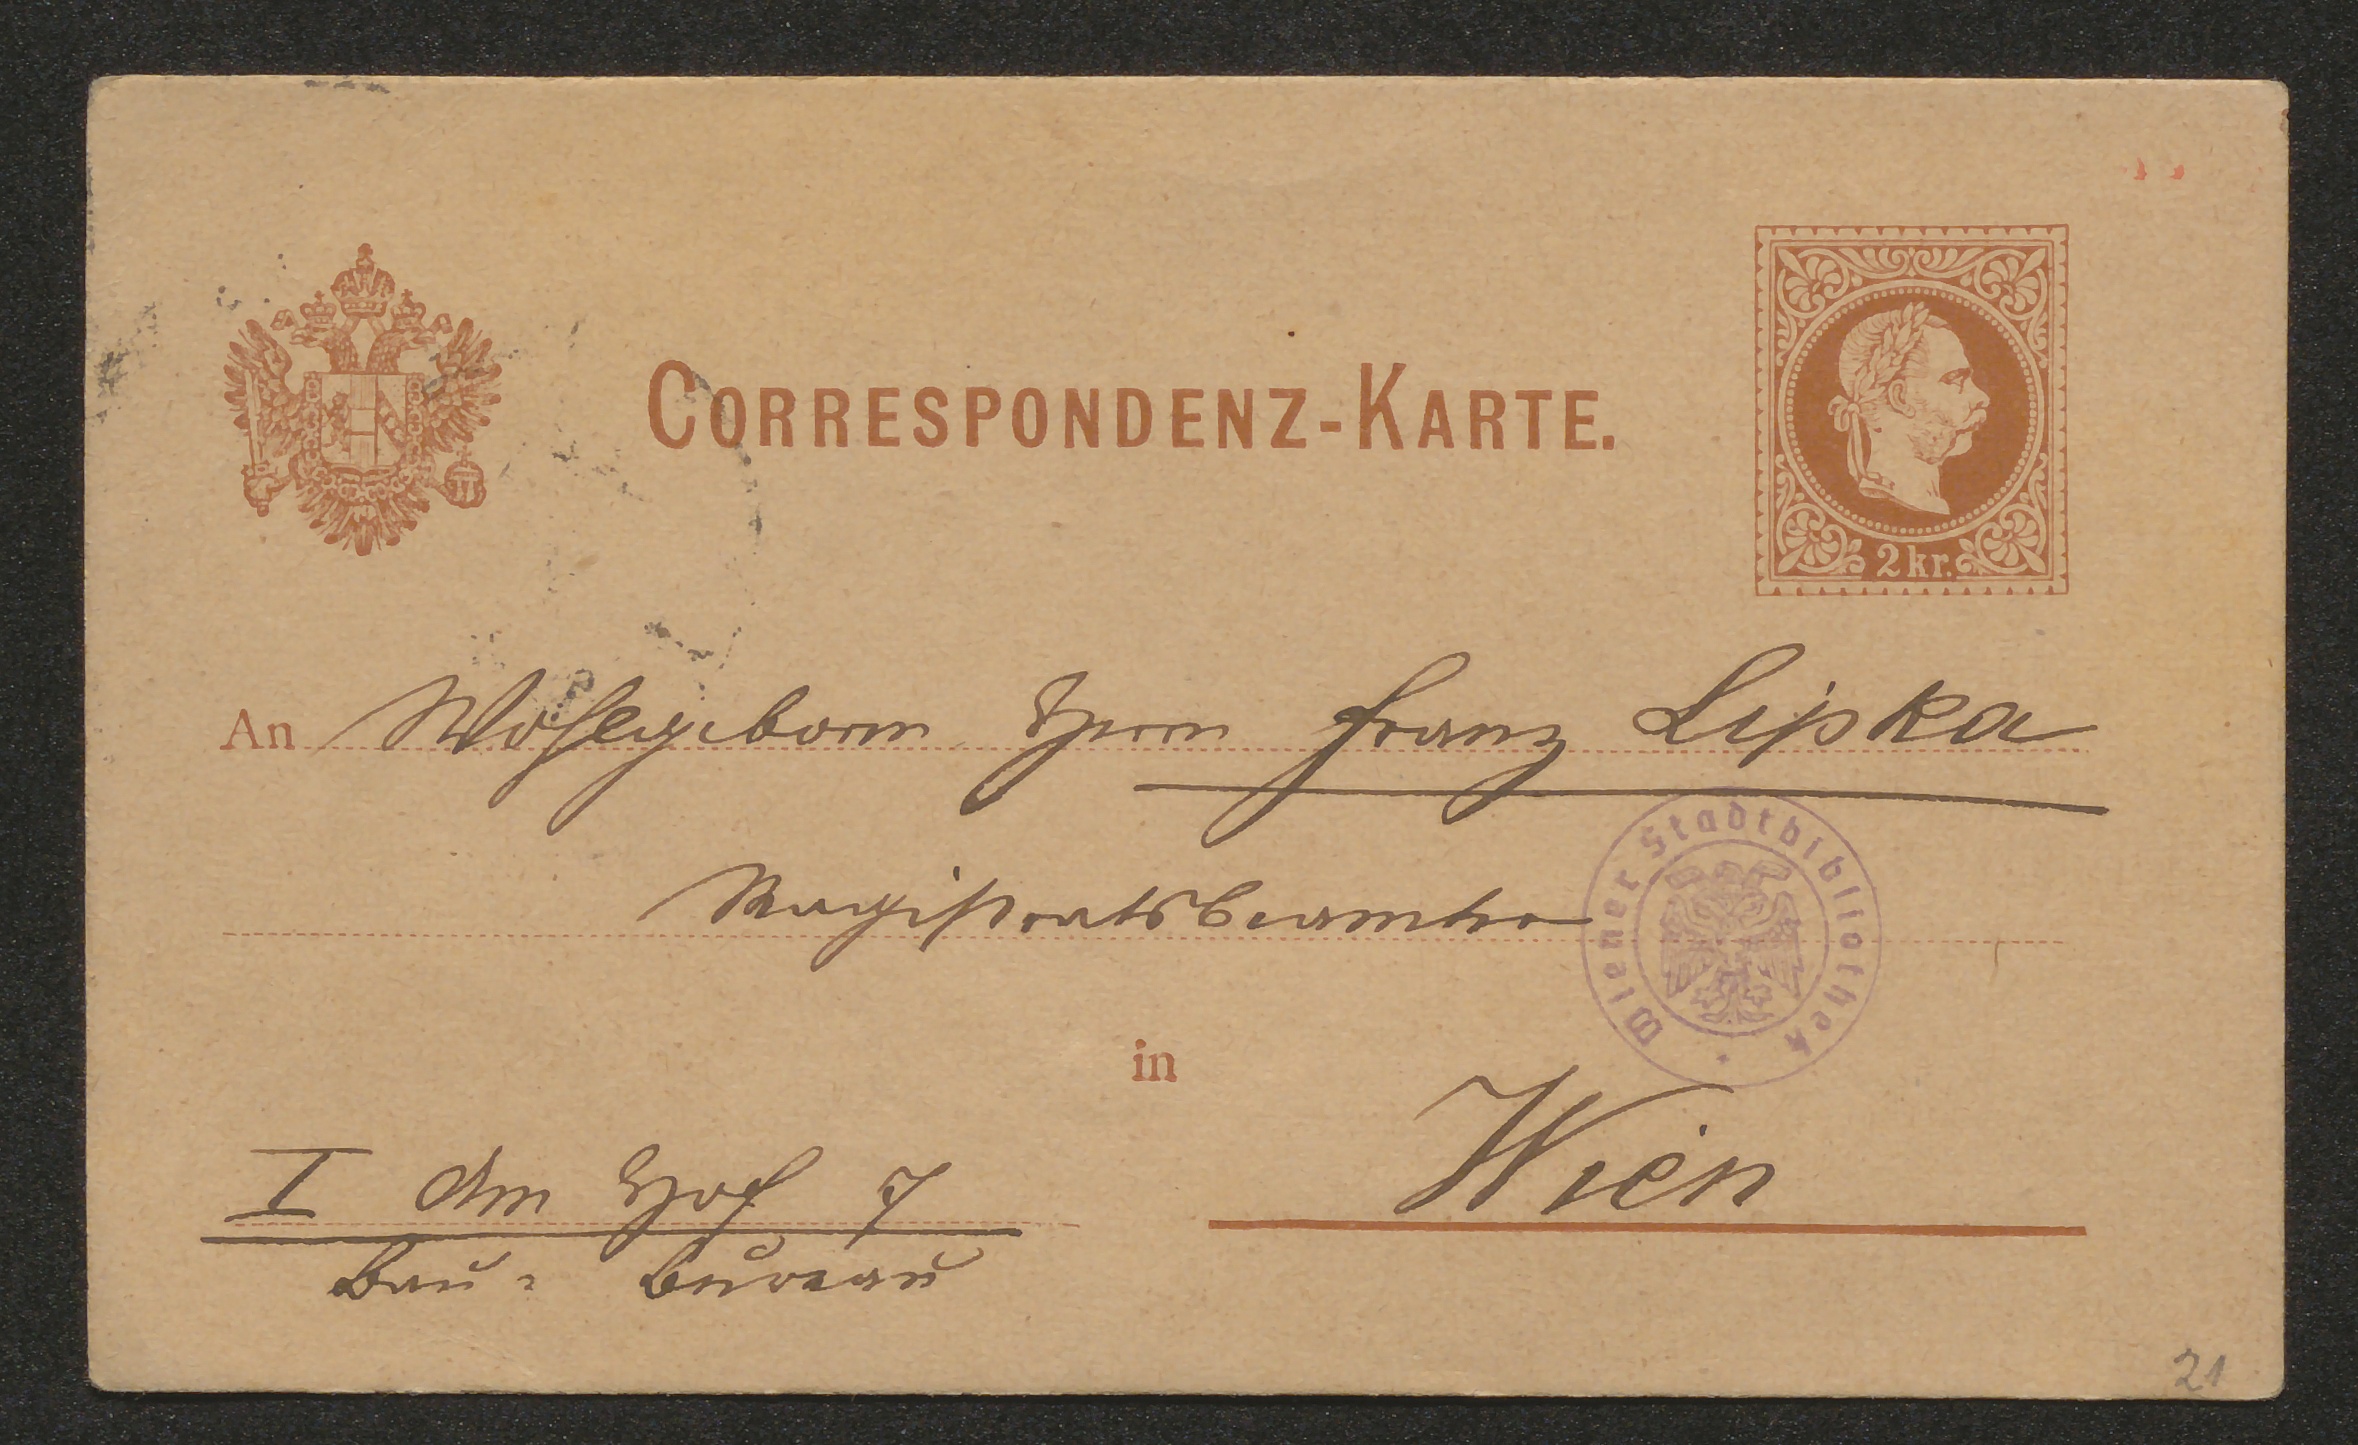 CORRESPONDENZ-KARTE.
2 kr.
An Wohlgeborn Herrn Franz Lipka
Magistratsbeamter
Wiener Stadtbibliothek
in
Wien
I Am Hof 7
Bau= Bureau
21